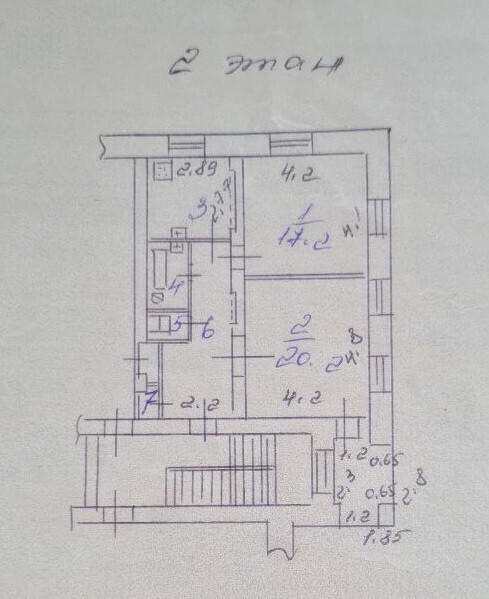 2 этаж
2.89
4.2
3
1
17.2
4
5
6
2
20.2
7
2.2
4.2
1.2
0.65
0.65
1.2
1.85